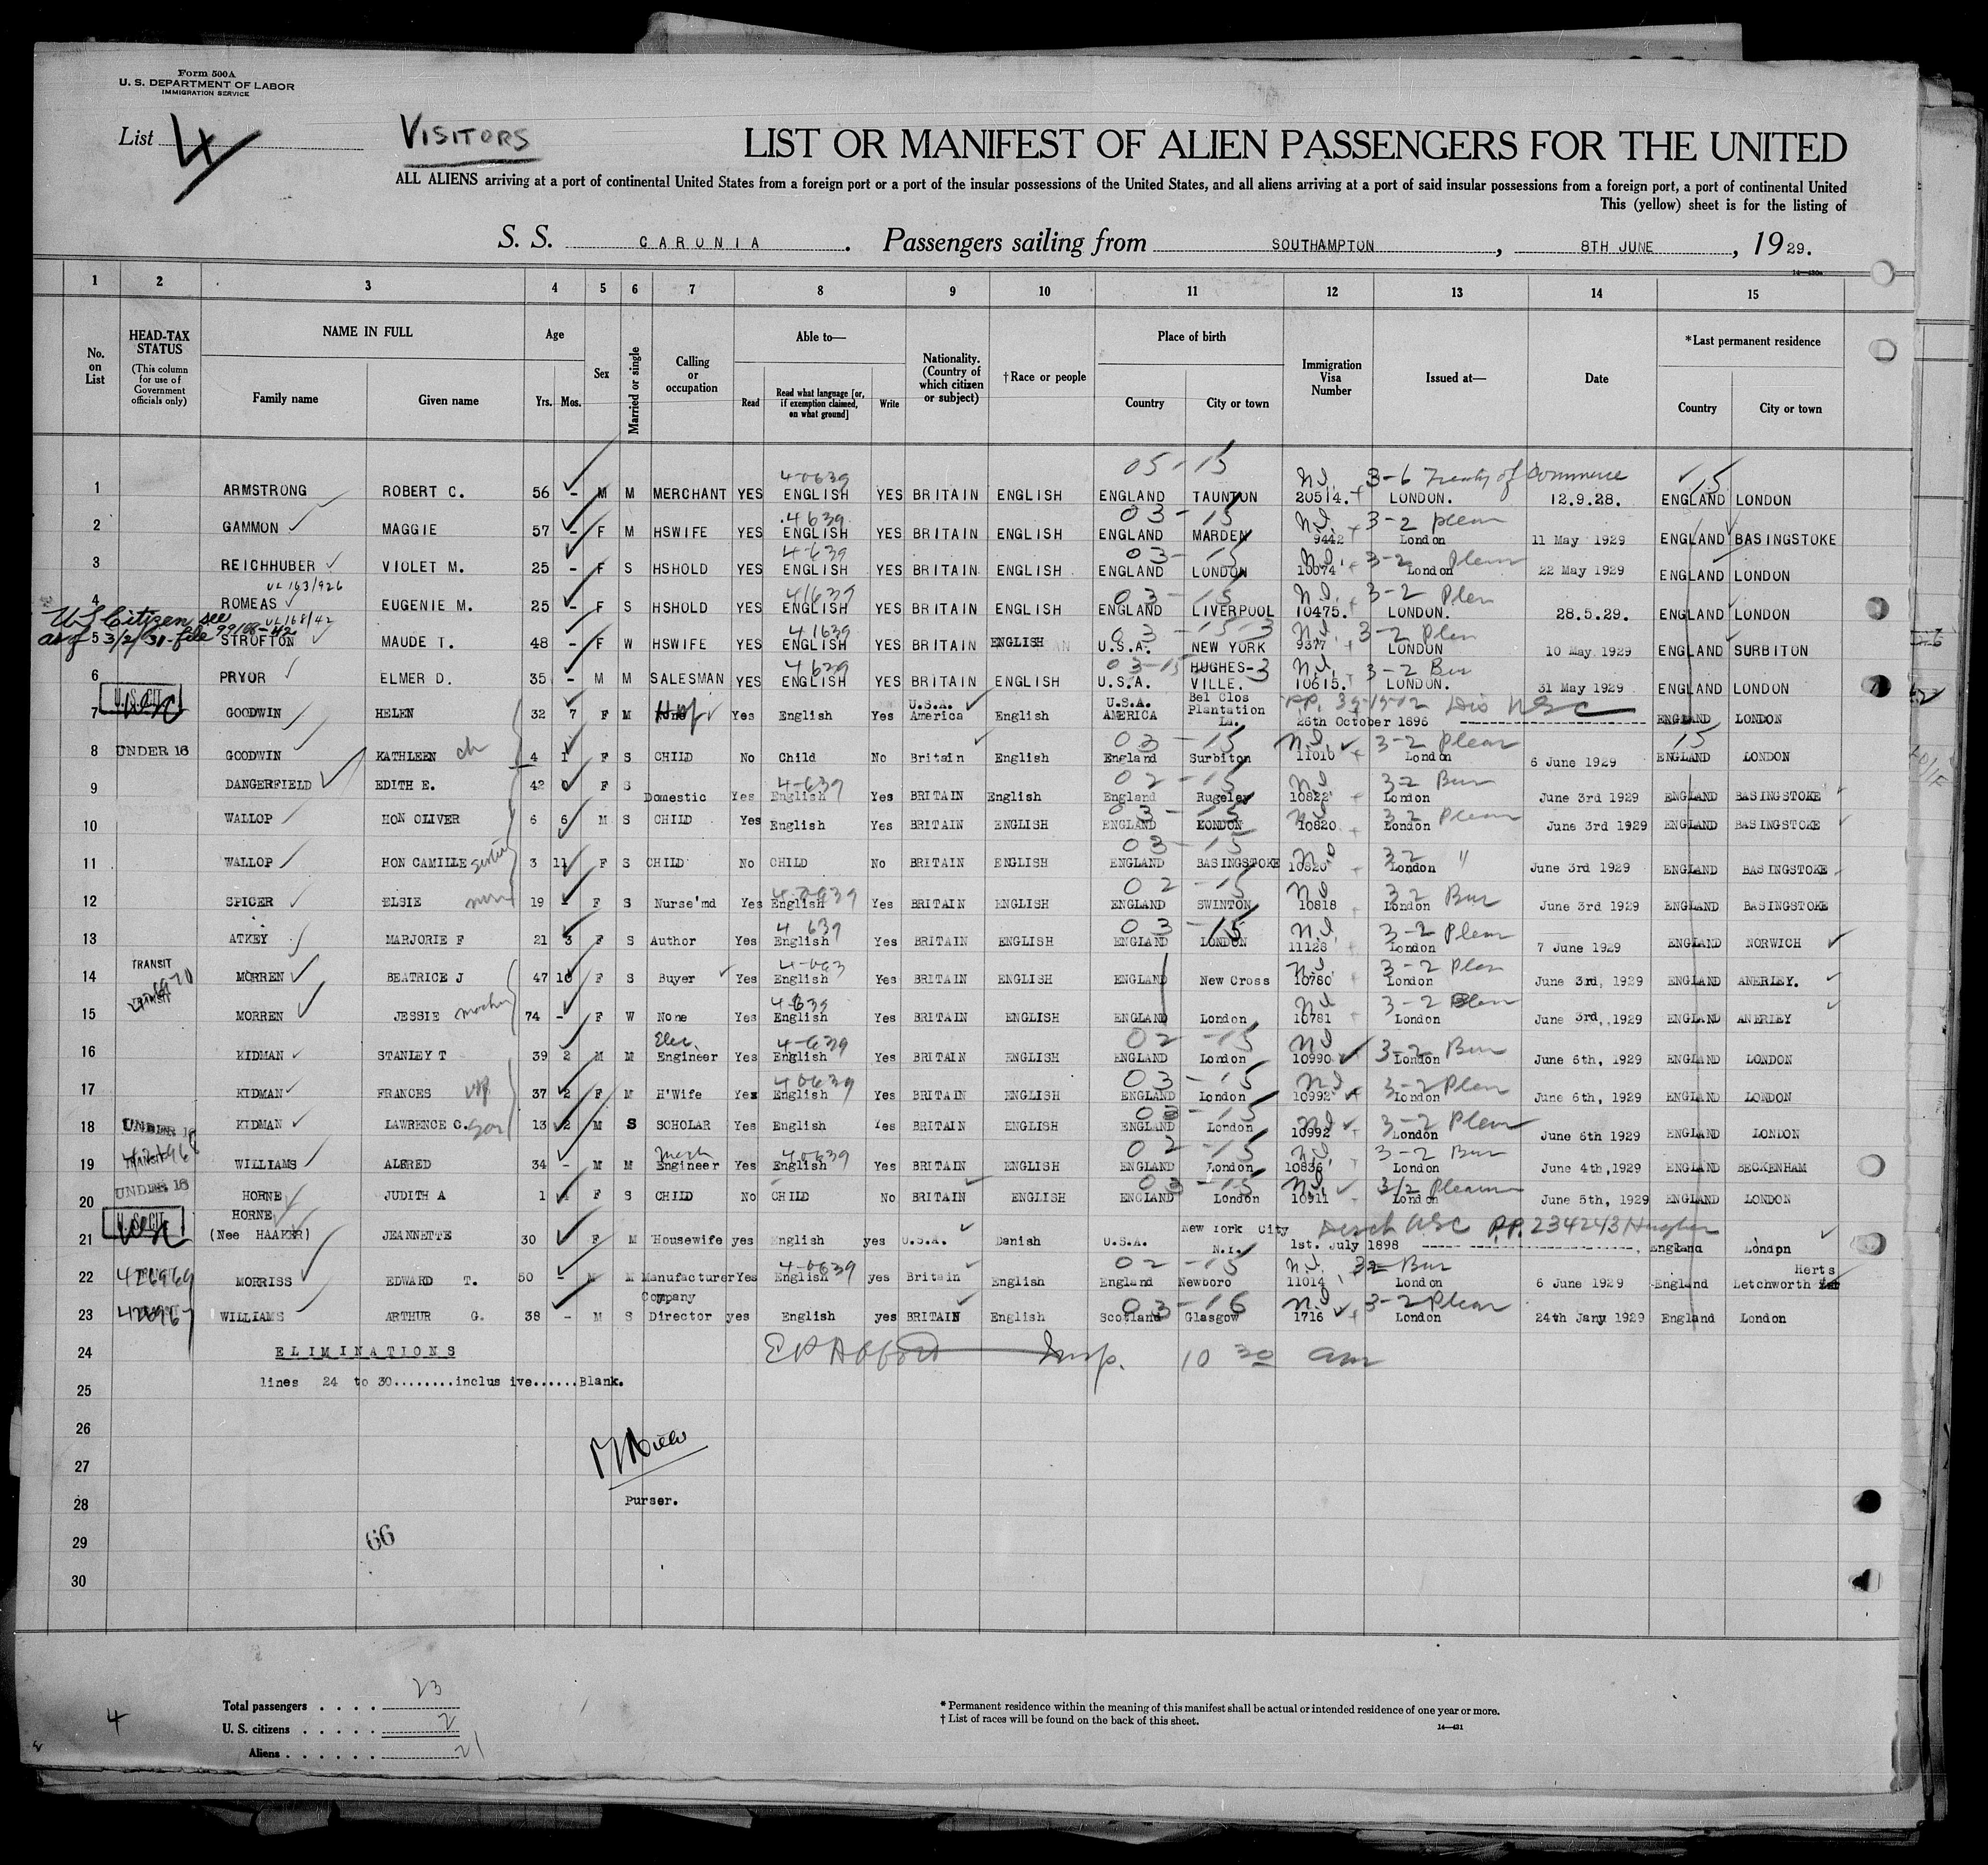 Form 500A
U. S. DEPARTMENT OF LABOR
IMMIGRATION SERVICE
List 4
VISITORS
LIST OR MANIFEST OF ALIEN PASSENGERS FOR THE UNITED
ALL ALIENS arriving at a port of continental United States from a foreign port or a port of the insular possessions of the United States, and all aliens arriving at a port of said insular possessions from a foreign port, a port of continental United
This (yellow) sheet is for the listing of
S. S. CARONIA. Passengers sailing from SOUTHAMPTON, 8TH JUNE, 1929.
1 2 3 4 5 6 7 8 9 10 11 12 13 14 15
No. on List
HEAD-TAX STATUS
(This column for use of Government officials only)
NAME IN FULL
Family name Given name
Age
Yrs. Mos.
Sex
Married or single
Calling or occupation
Able to—
Read Read what language [or, if exemption claimed, on what ground] Write
Nationality. (Country of which citizen or subject)
†Race or people
Place of birth
Country City or town
Immigration Visa Number
Issued at—
Date
*Last permanent residence
Country City or town
05-15
4-0639 3-6 Treaty of Commerce 15
1 ARMSTRONG ROBERT C. 56 - M M MERCHANT YES ENGLISH YES BRITAIN ENGLISH ENGLAND TAUNTON 20514. LONDON. 12.9.28. ENGLAND LONDON
4639 03-15 3-2 Pleas
2 GAMMON MAGGIE 57 - F M HSWIFE YES ENGLISH YES BRITAIN ENGLISH ENGLAND MARDEN 9442 London 11 May 1929 ENGLAND BASINGSTOKE
4-639 03-15 3-2 Pleas
3 REICHHUBER VIOLET M. 25 - F S HSHOLD YES ENGLISH YES BRITAIN ENGLISH ENGLAND LONDON 10074 London 22 May 1929 ENGLAND LONDON
VL 163/926 03-15 3-2 Plea
4 ROMEAS EUGENIE M. 25 - F S HSHOLD YES ENGLISH YES BRITAIN ENGLISH ENGLAND LIVERPOOL 10475. LONDON. 28.5.29. ENGLAND LONDON
US Citizen see VL 168/42
as of 3/2/31-file 99/88-42
5 STROFTON MAUDE T. 48 - F W HSWIFE YES ENGLISH YES BRITAIN ENGLISH U.S.A. NEW YORK 9377 LONDON 10 May 1929 ENGLAND SURBITON
4639 03-15 3-2 Bus
6 PRYOR ELMER D. 35 - M M SALESMAN YES ENGLISH YES BRITAIN ENGLISH U.S.A. HUGHES-VILLE. 10615. LONDON. 31 May 1929 ENGLAND LONDON
U.S. CIT.
7 GOODWIN HELEN 32 7 F M Hwf Yes English Yes U.S.A. America English U.S.A. AMERICA Bel Clos Plantation La. 26th October 1896 ENGLAND LONDON
03-15 3-2 Pleas 15
8 UNDER 16 GOODWIN KATHLEEN ch 4 1 F S CHILD No Child No Britain English England Surbiton 11010 London 6 June 1929 ENGLAND LONDON
4-639 02-15 3-2 Bus
9 DANGERFIELD EDITH E. 42 0 F S Domestic Yes English Yes BRITAIN English England Rugeley 10822 London June 3rd 1929 ENGLAND BASINGSTOKE
03-15 3-2 Pleas
10 WALLOP HON OLIVER 6 6 M S CHILD Yes English Yes BRITAIN ENGLISH ENGLAND LONDON 10820 London June 3rd 1929 ENGLAND BASINGSTOKE
03-15 3-2 "
11 WALLOP HON CAMILLE sister 3 11 F S CHILD No CHILD No BRITAIN ENGLISH ENGLAND BASINGSTOKE 10820 London June 3rd 1929 ENGLAND BASINGSTOKE
02-15 3-2 Bus
12 SPICER ELSIE nurse 19 - F S Nurse'md Yes English Yes BRITAIN ENGLISH ENGLAND SWINTON 10818 London June 3rd 1929 ENGLAND BASINGSTOKE
4 639 03-15 3-2 Pleas
13 ATKEY MARJORIE F 21 3 F S Author Yes English Yes BRITAIN ENGLISH ENGLAND LONDON 11128 London 7 June 1929 ENGLAND NORWICH
TRANSIT 4-063 3-2 Pleas
14 MORREN BEATRICE J 47 10 F S Buyer Yes English Yes BRITAIN ENGLISH ENGLAND New Cross 10780 London June 3rd, 1929 ENGLAND ANERLEY.
4-639 3-2 Pleas
15 MORREN JESSIE mother 74 - F W None Yes English Yes BRITAIN ENGLISH ENGLAND London 10781 London June 3rd, 1929 ENGLAND ANERLEY
Elec. 4-639 02-15 3-2 Bus
16 KIDMAN STANLEY T 39 2 M M Engineer Yes English Yes BRITAIN ENGLISH ENGLAND London 10990 London June 6th, 1929 ENGLAND LONDON
40639 03-15 3-2 Pleas
17 KIDMAN FRANCES wf 37 2 F M H'Wife Yes English Yes BRITAIN ENGLISH ENGLAND London 10992 London June 6th, 1929 ENGLAND LONDON
03-15 3-2 Pleas
18 UNDER 16 KIDMAN LAWRENCE C. son 13 2 M S SCHOLAR Yes English Yes BRITAIN ENGLISH ENGLAND London 10992 London June 6th 1929 ENGLAND LONDON
TRANSIT Mech 40639 02-15 3-2 Bus
19 WILLIAMS ALFRED 34 - M M Engineer Yes English Yes BRITAIN ENGLISH ENGLAND London 10836 London June 4th, 1929 ENGLAND BECKENHAM
03-15 3/2 Pleasure
20 UNDER 16 HORNE JUDITH A 1 F S CHILD No CHILD No BRITAIN ENGLISH ENGLAND London 10911 London June 5th, 1929 ENGLAND LONDON
U. S. CIT. HORNE New York City P.P. 234243
21 (Nee HAAKER) JEANNETTE 30 F M Housewife yes English yes U.S.A. Danish U.S.A. N.Y. 1st. July 1898 England London
4-0639 02-15 3-2 Bus Herts
22 426969 MORRISS EDWARD T. 50 - M M Manufacturer Yes English yes Britain English England Newboro 11014 London 6 June 1929 England Letchworth
Company 03-16 3-2 Pleas
23 426967 WILLIAMS ARTHUR G. 38 - M S Director yes English yes BRITAIN English Scotland Glasgow 1716 London 24th Jany 1929 England London
24 ELIMINATIONS Insp. 10 30 am
lines 24 to 30........inclusive......Blank.
25
26
27
28 Purser.
29 66
30
Total passengers . . . . 23
U. S. citizens . . . . . 2
Aliens . . . . . . 21
4
* Permanent residence within the meaning of this manifest shall be actual or intended residence of one year or more.
† List of races will be found on the back of this sheet.
14—421